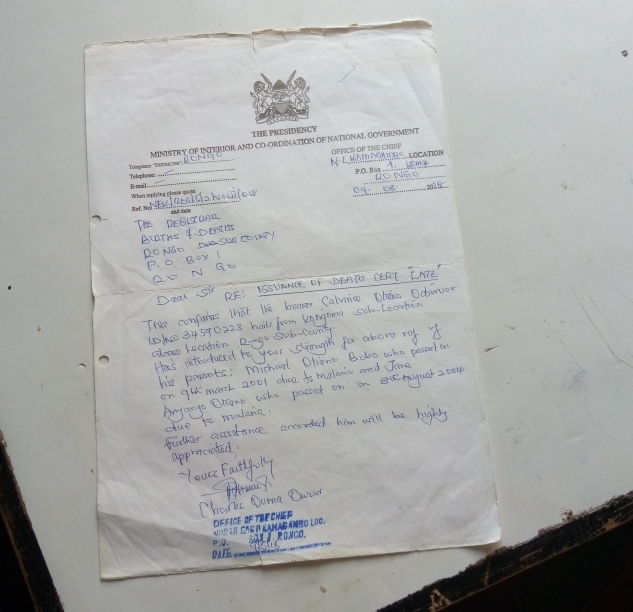 THE PRESIDENCY
MINISTRY OF INTERIOR AND CO-ORDINATION OF NATIONAL GOVERNMENT
Telegrams: "DISTRICTER", RONGO
Telephone:
E-mail
When replying please quote
Ref. No
and date
OFFICE OF THE CHIEF
N. E. KAMAGAMBO LOCATION
P.O. Box 1,
RONGO
09. 08. 2018
THE REGISTRAR
BIRTHS & DEATHS
RONGO SUB COUNTY
P. O. BOX 1
RO N GO
Dear Sir
RE: ISSUANCE OF DEATH CERT "LATE"
This confirms that the bearer Calvince Otieno
ID/NO 34590223 hails from sub-Location
above Location Rongo Sub-County.
Has introduced to your strength for above ref of
his parents; Michael Otieno Bobo who passed on
on 9th march 2001 due to malaria and Jane
Anyango Otieno who passed on on 8th August 2004
due to malaria.
Further assistance accorded him will be highly
appreciated.
Yours Faithfully
Charles Ouma
OFFICE OF THE CHIEF
NORTH EAST KAMAGAMBO LOC.
P.O. BOX 1, RONGO.
DATE